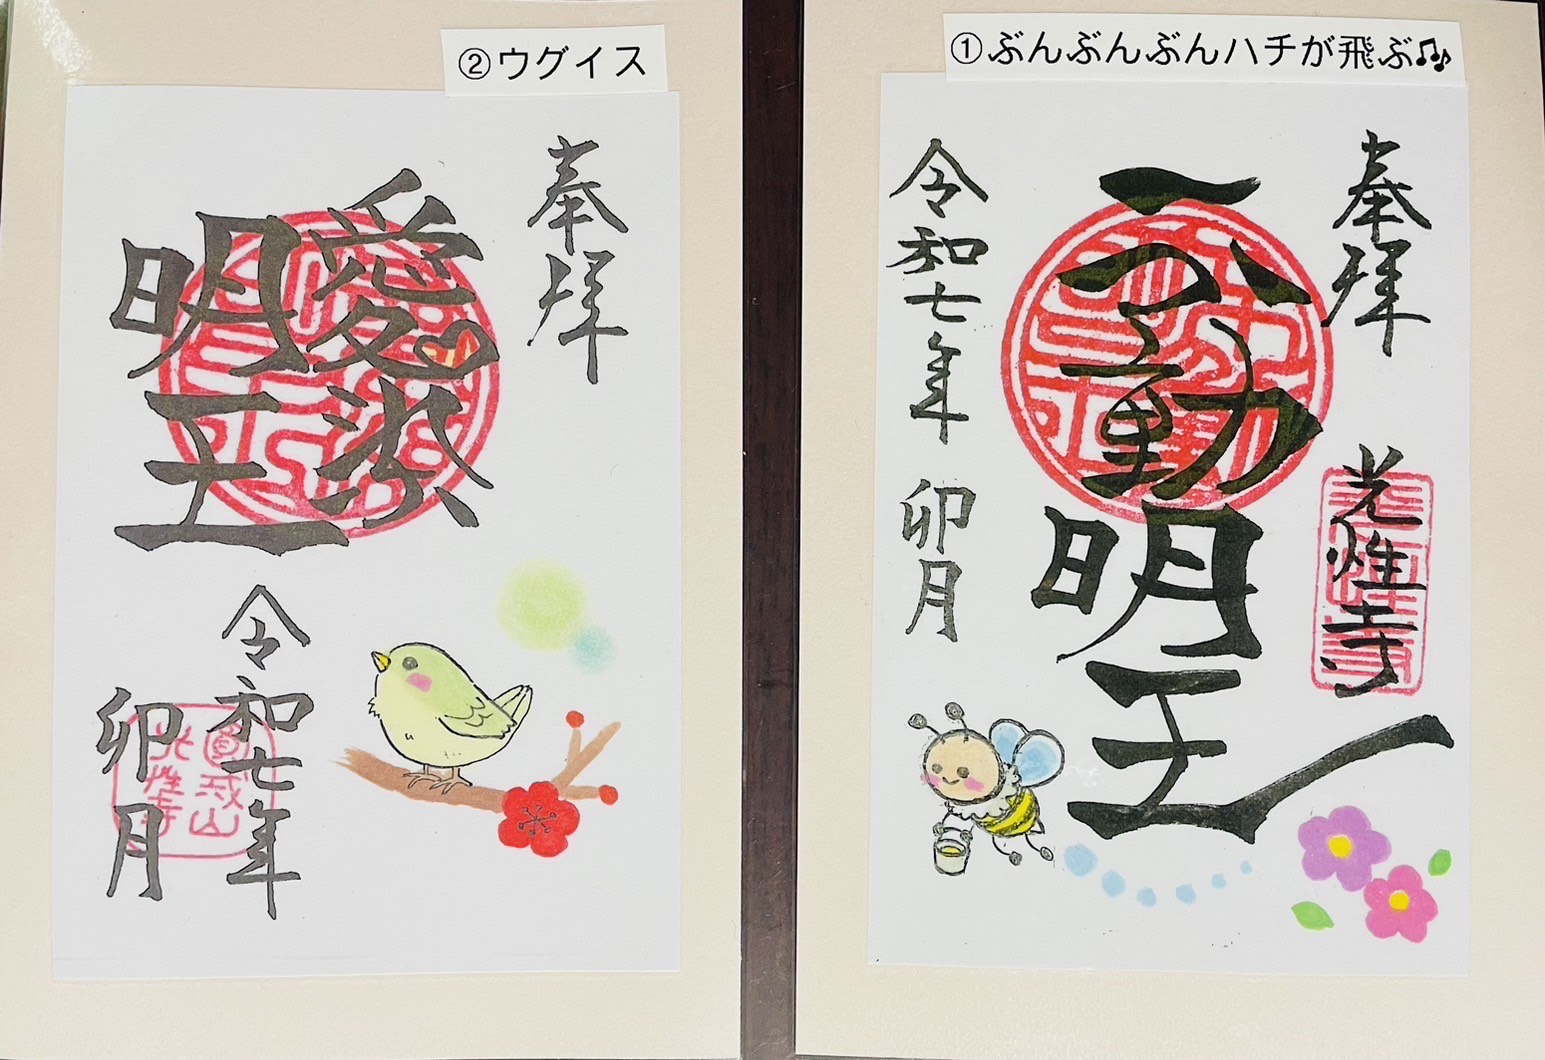 ①ぶんぶんぶんハチが飛ぶ♫
奉拝
光性寺
不動明王
令和七年 卯月
②ウグイス
奉拝
愛染
明王
令和七年
卯月
光性寺